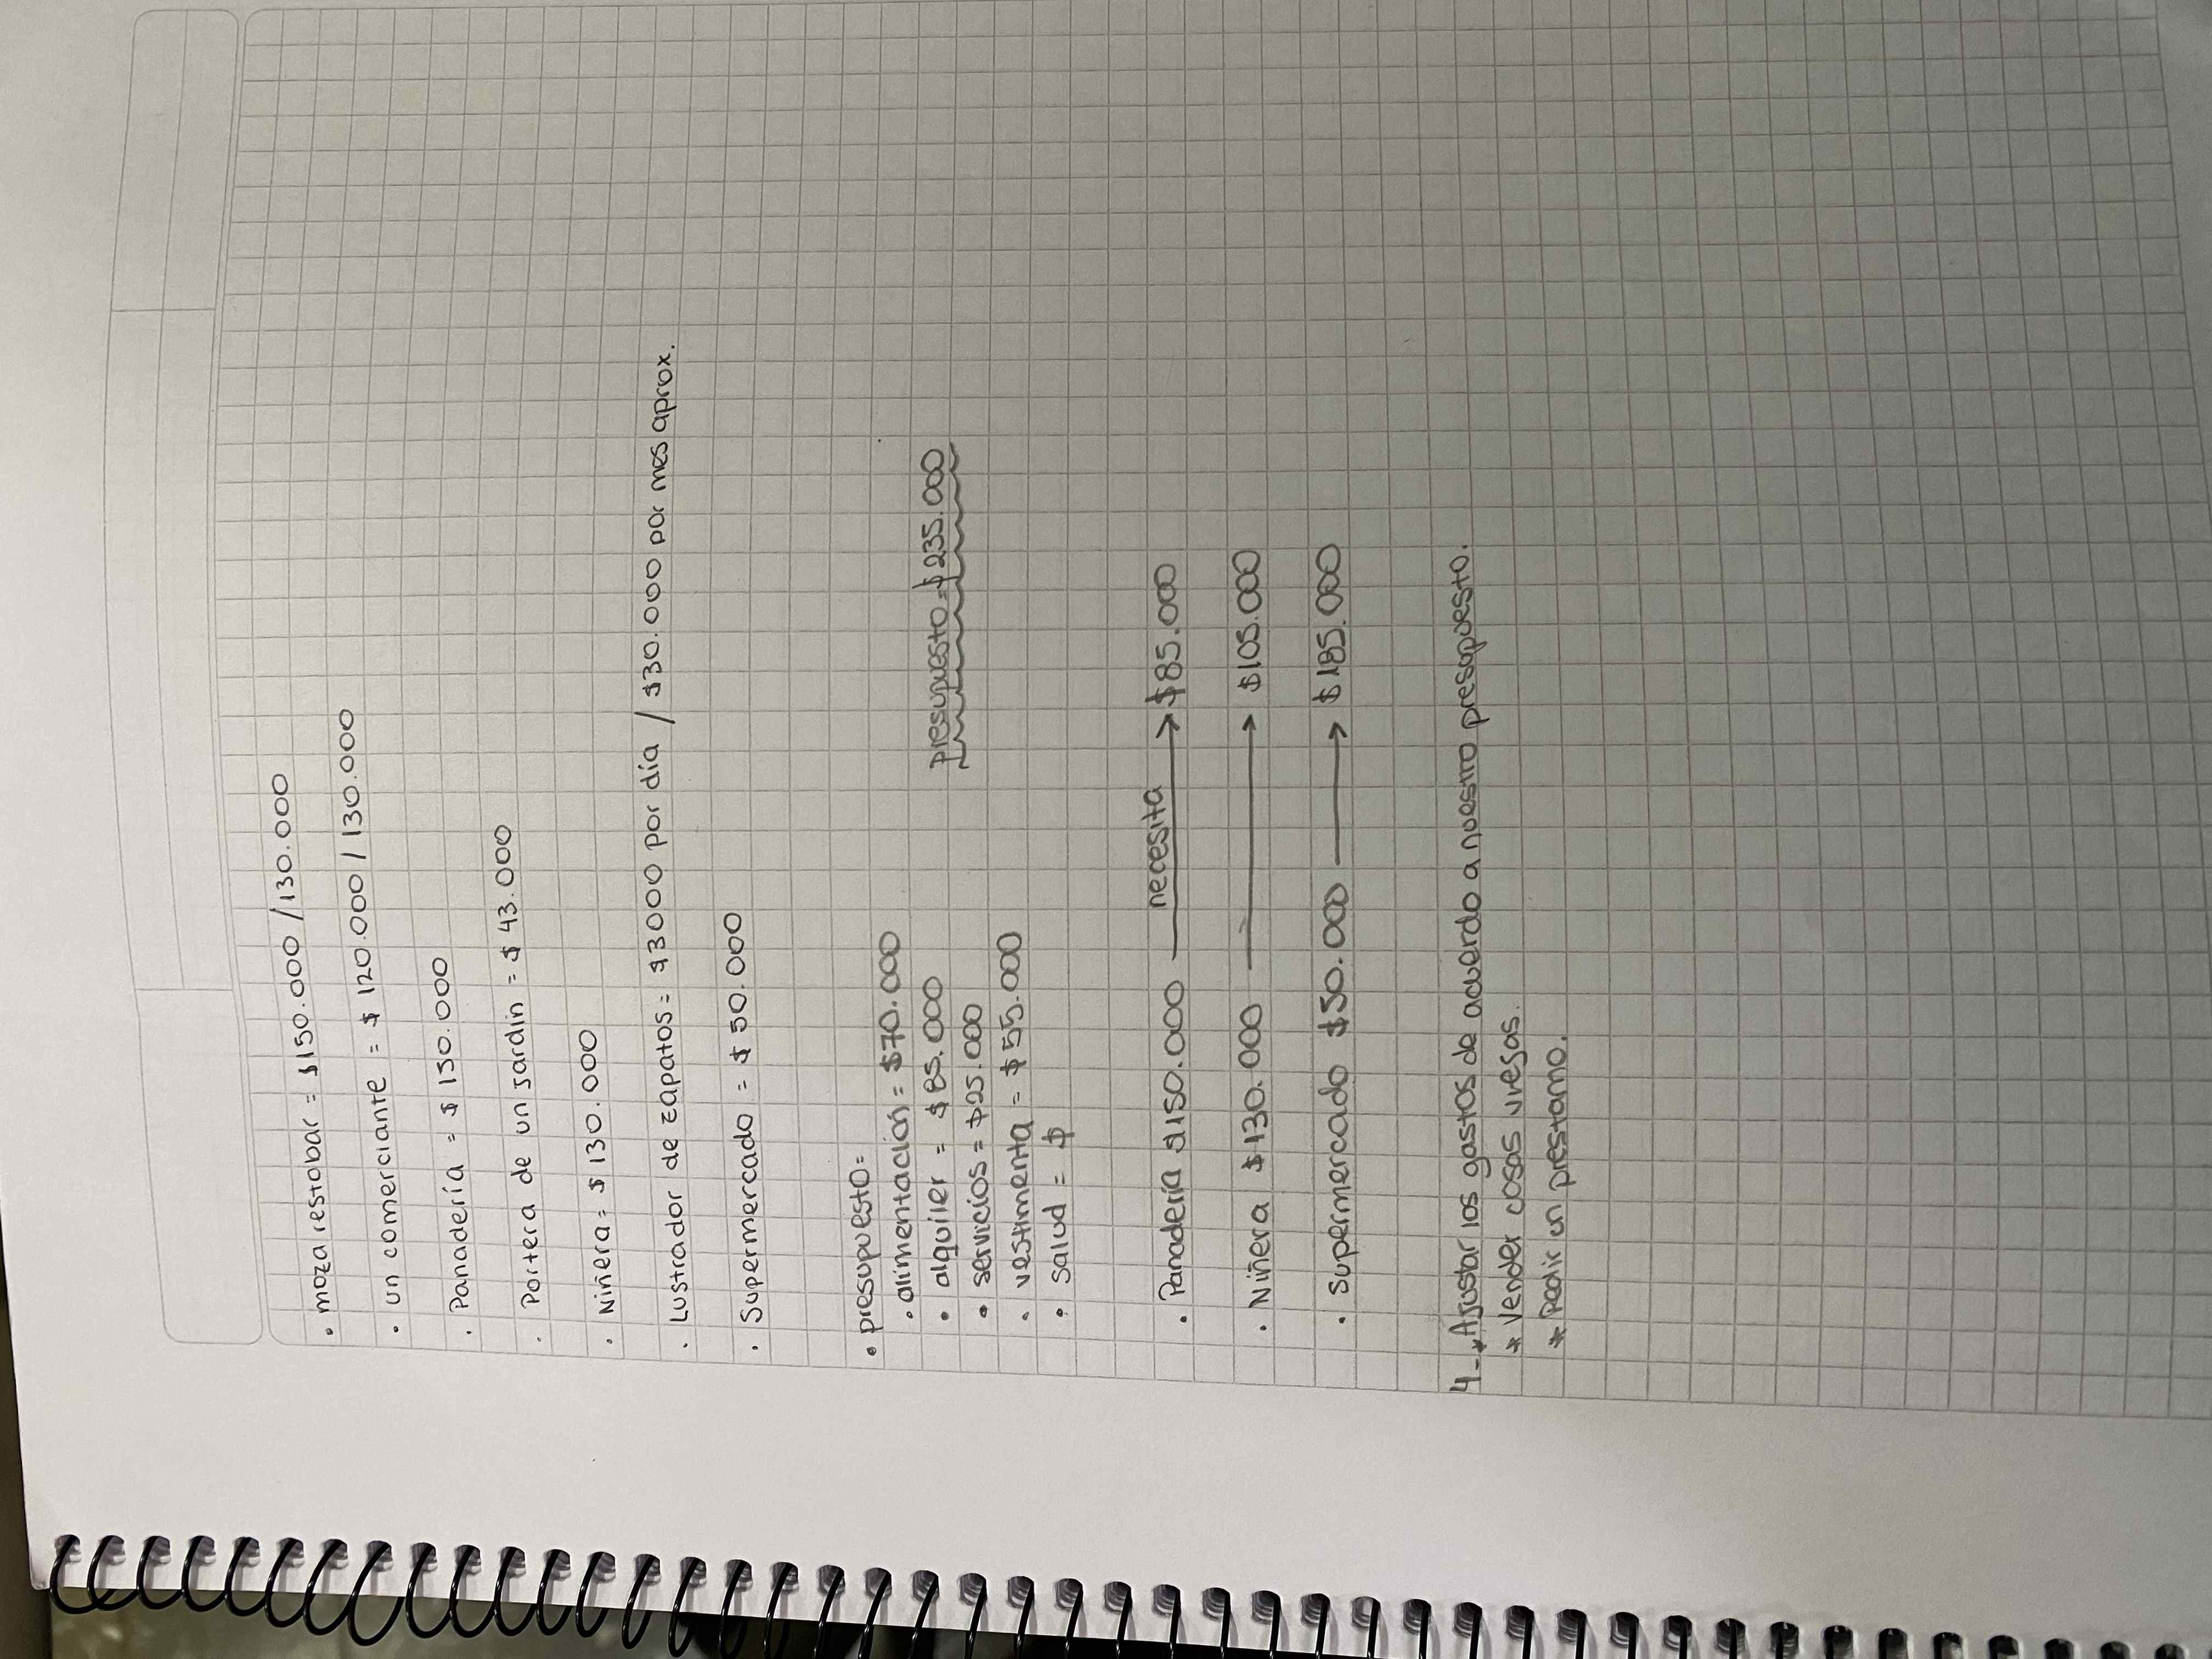 • moza restobar = $150.000 / 130.000
• un comerciante = $ 120.000 / 130.000
• Panadería = $ 150.000
• Portera de un Jardin = $ 43.000
• Niñera = $ 130.000
• Lustrador de zapatos = $3000 por día / $30.000 por mes aprox.
• Supermercado = $ 50.000
• presupuesto =
• alimentación = $70.000
• alquiler = $85.000
presupuesto = $235.000
• servicios = $25.000
• vestimenta = $55.000
• salud = $
• Panadería $150.000 necesita → $85.000
• Niñera $130.000 → $105.000
• supermercado $50.000 → $185.000
4- * Ajustar los gastos de acuerdo a nuestro presupuesto.
* Vender cosas viejas.
* Pedir un prestamo.